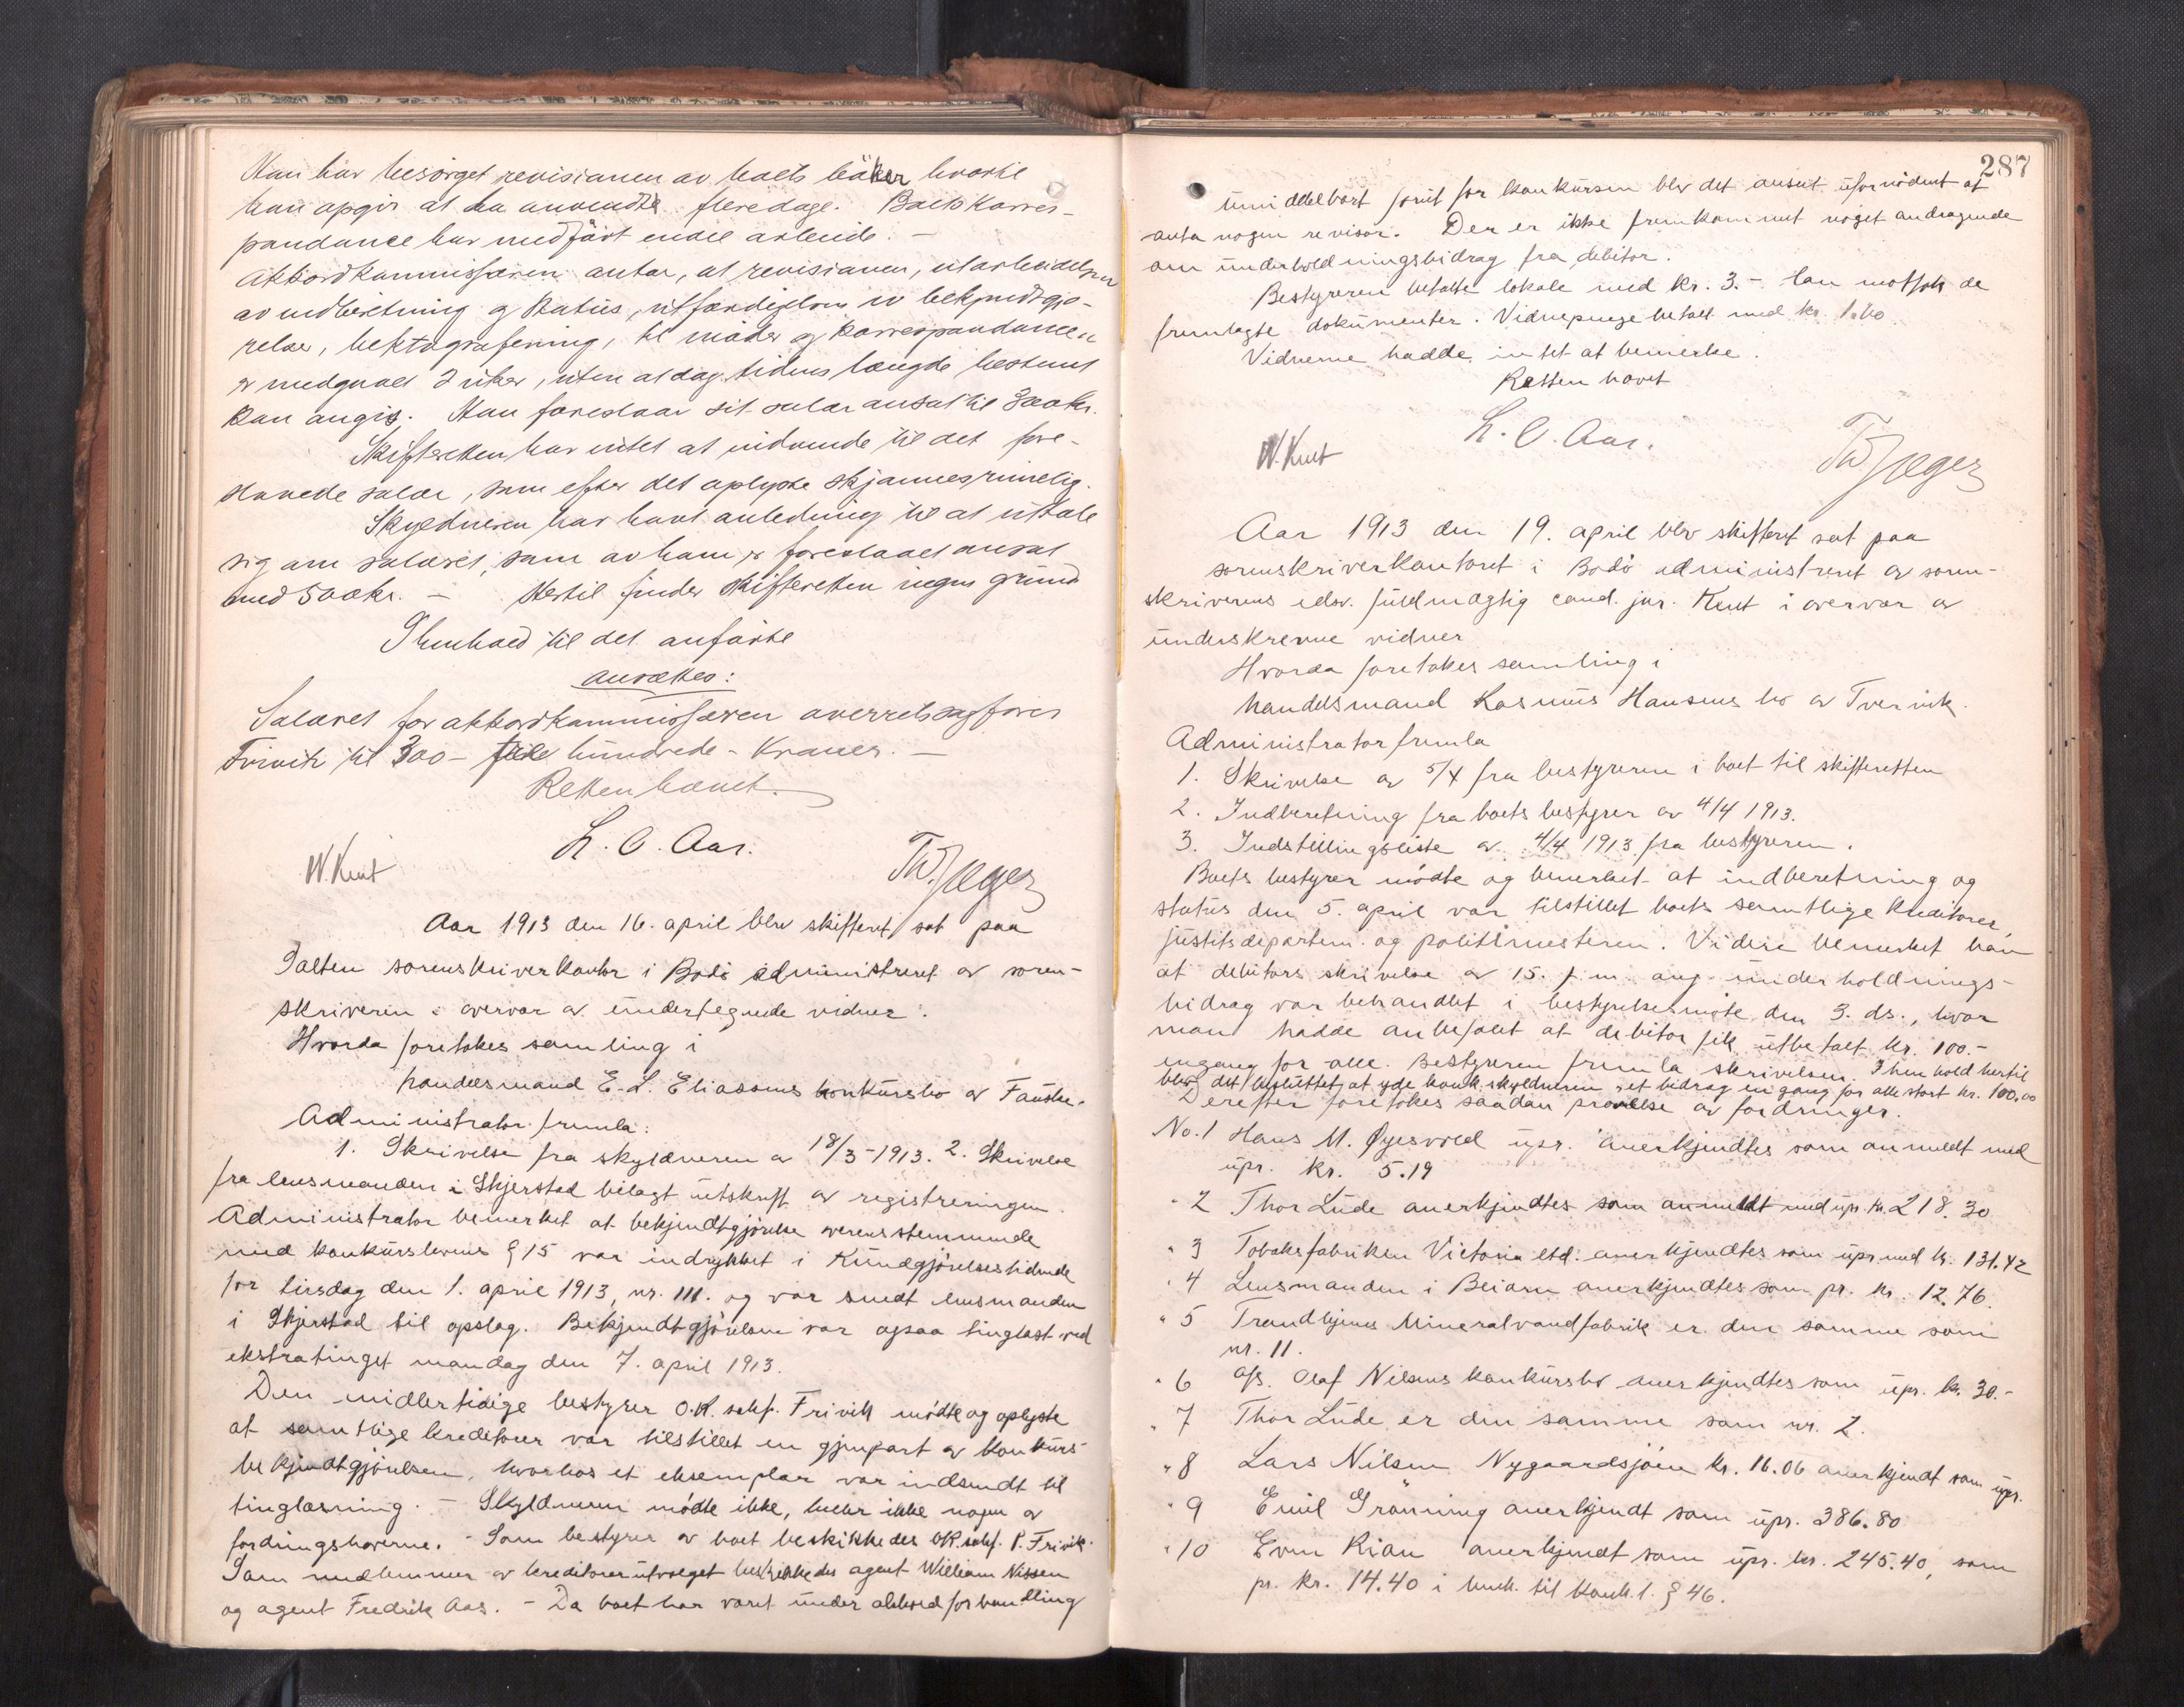 Han har besörget revisionen av boets böker hvortil
han opgir at ha anvendt flere dage. Boets korres-
pondance har medfört endel arbeide. —
Akkordkommissæren antar, at revisionen, utarbeidelsen
av indberetning og status, utfærdigelsen av bekjendtgjö-
relser, hektografering, til möder og korrespondancen
er medgaaet 2 uker, uten at dag tidens længde bestemt
kan angis. Han foreslaar sit salær ansat til 300 kr.
Skifteretten har intet at indvende til det fore-
slaaede salær, som efter det oplyste skjönnes rimelig.
Skyldneren har havt anledning til at uttale
sig om salæret, som av ham er foreslaaet ansat
med 500 kr. — Hertil finder skifteretten ingen grund
I henhold til det anförte
ansættes:
Salæret for akkordkommissæren overretssagförer
Frivik til 300 — hundrede - Kroner. —
Retten hævet.
L. O. Aar.
W. Knut
Th. Jæger
Aar 1913 den 16. april blev skifteret sat paa
Salten sorenskriverkontor i Bodö administreret av soren-
skriveren i overvær av undertegnede vidner.
Hvorda foretokes samling i
handelsmand E. L. Eliassens konkursbo av Fauske.
Administrator fremla:
1. Skrivelse fra skyldneren av 18/3-1913. 2. Skrivelse
fra lensmanden i Skjerstad bilagt utskrift av registreringen.
Administrator bemerket at bekjendtgjörelse overensstemmende
med konkurslovens § 15 var indrykket i Kundgjörelsestidende
for tirsdag den 1. april 1913, nr. 111. og var sendt lensmanden
i Skjerstad til opslag. Bekjendtgjörelsen var ogsaa tinglæst ved
ekstratinget mandag den 7. april 1913.
Den midlertidige bestyrer O.R. sakf. Frivik mödte og oplyste
at samtlige kreditorer var tilstillet en gjenpart av konkurs-
bekjendtgjörelsen, hvorhos et eksemplar var indsendt til
tinglæsning. — Skyldneren mödte ikke, heller ikke nogen av
fordringshaverne. - Som bestyrer av boet beskikkedes O.R. sakf. P. Frivik.
Som medlemmer av kreditorutvalget beskikkedes agent William Nissen
og agent Fredrik Aas. - Da boet har været under akkordforhandling
287
umiddelbart forut for konkursen blev det anset ufornödent at
anta nogen revisor. Der er ikke fremkommet noget andragende
om underholdningsbidrag fra debitor.
Bestyreren betalte lokale med kr. 3.- Han mottok de
fremlagte dokumenter. Vidnepenge betalt med kr. 1.60
Vidnerne hadde intet at bemerke.
Retten hævet
L. O. Aar.
W. Knut
Th Jæger
Aar 1913 den 19. april blev skifteret sat paa
sorenskriverkontoret i Bodö administreret av soren-
skriverens edsv. fuldmægtig cand. jur. Knut i overvær av
underskrevne vidner
Hvorda foretokes samling i
handelsmand Rasmus Hansens bo av Tvervik.
Administrator fremla
1. Skrivelse av 5/4 fra bestyreren i boet til skifteretten
2. Indberetning fra boets bestyrer av 4/4 1913.
3. Indstillingsliste av 4/4 1913 fra bestyreren.
Boets bestyrer mödte og bemerket at indberetning og
status den 5. april var tilstillet boets samtlige kreditorer,
justitsdepartem. og politimesteren. Videre bemerket han
at debitors skrivelse av 15. f.m. ang. underholdnings-
bidrag var behandlet i bestyrelsesmöte den 3. ds., hvor
man hadde anbefalet at debitor fik utbetalt kr. 100.-
engang for alle. Bestyreren fremla skrivelsen. I henhold hertil
blev det besluttet at yde konk. skyldneren et bidrag en gang for alle stort kr. 100.00
Derefter foretokes saadan prövelse av fordringer.
No. 1 Hans M. Øyesvold upr. anerkjendtes som anmeldt med
upr. kr. 5.19
" 2 Thor Lude anerkjendtes som anmeldt med upr. kr. 218.30
" 3 Tobaksfabriken Victoria ltd. anerkjendtes som upr. med kr. 131.42
" 4 Lensmanden i Beiarn anerkjendtes som pr. kr. 12.76.
" 5 Trondhjems Mineralvandfabrik er den samme som
nr. 11.
" 6 A/S. Olaf Nilsens konkursbo anerkjendtes som upr. kr. 30.-
" 7 Thor Lude er den samme som nr. 2.
" 8 Lars Nilsen Nygaardsjöen kr. 16.06 anerkjendt som upr.
" 9 Emil Grönning anerkjendt som upr. 386.80
" 10 Even Rian anerkjendt som upr. kr. 245.40, som
pr. kr. 14.40 i henh. til konk.l. § 46.